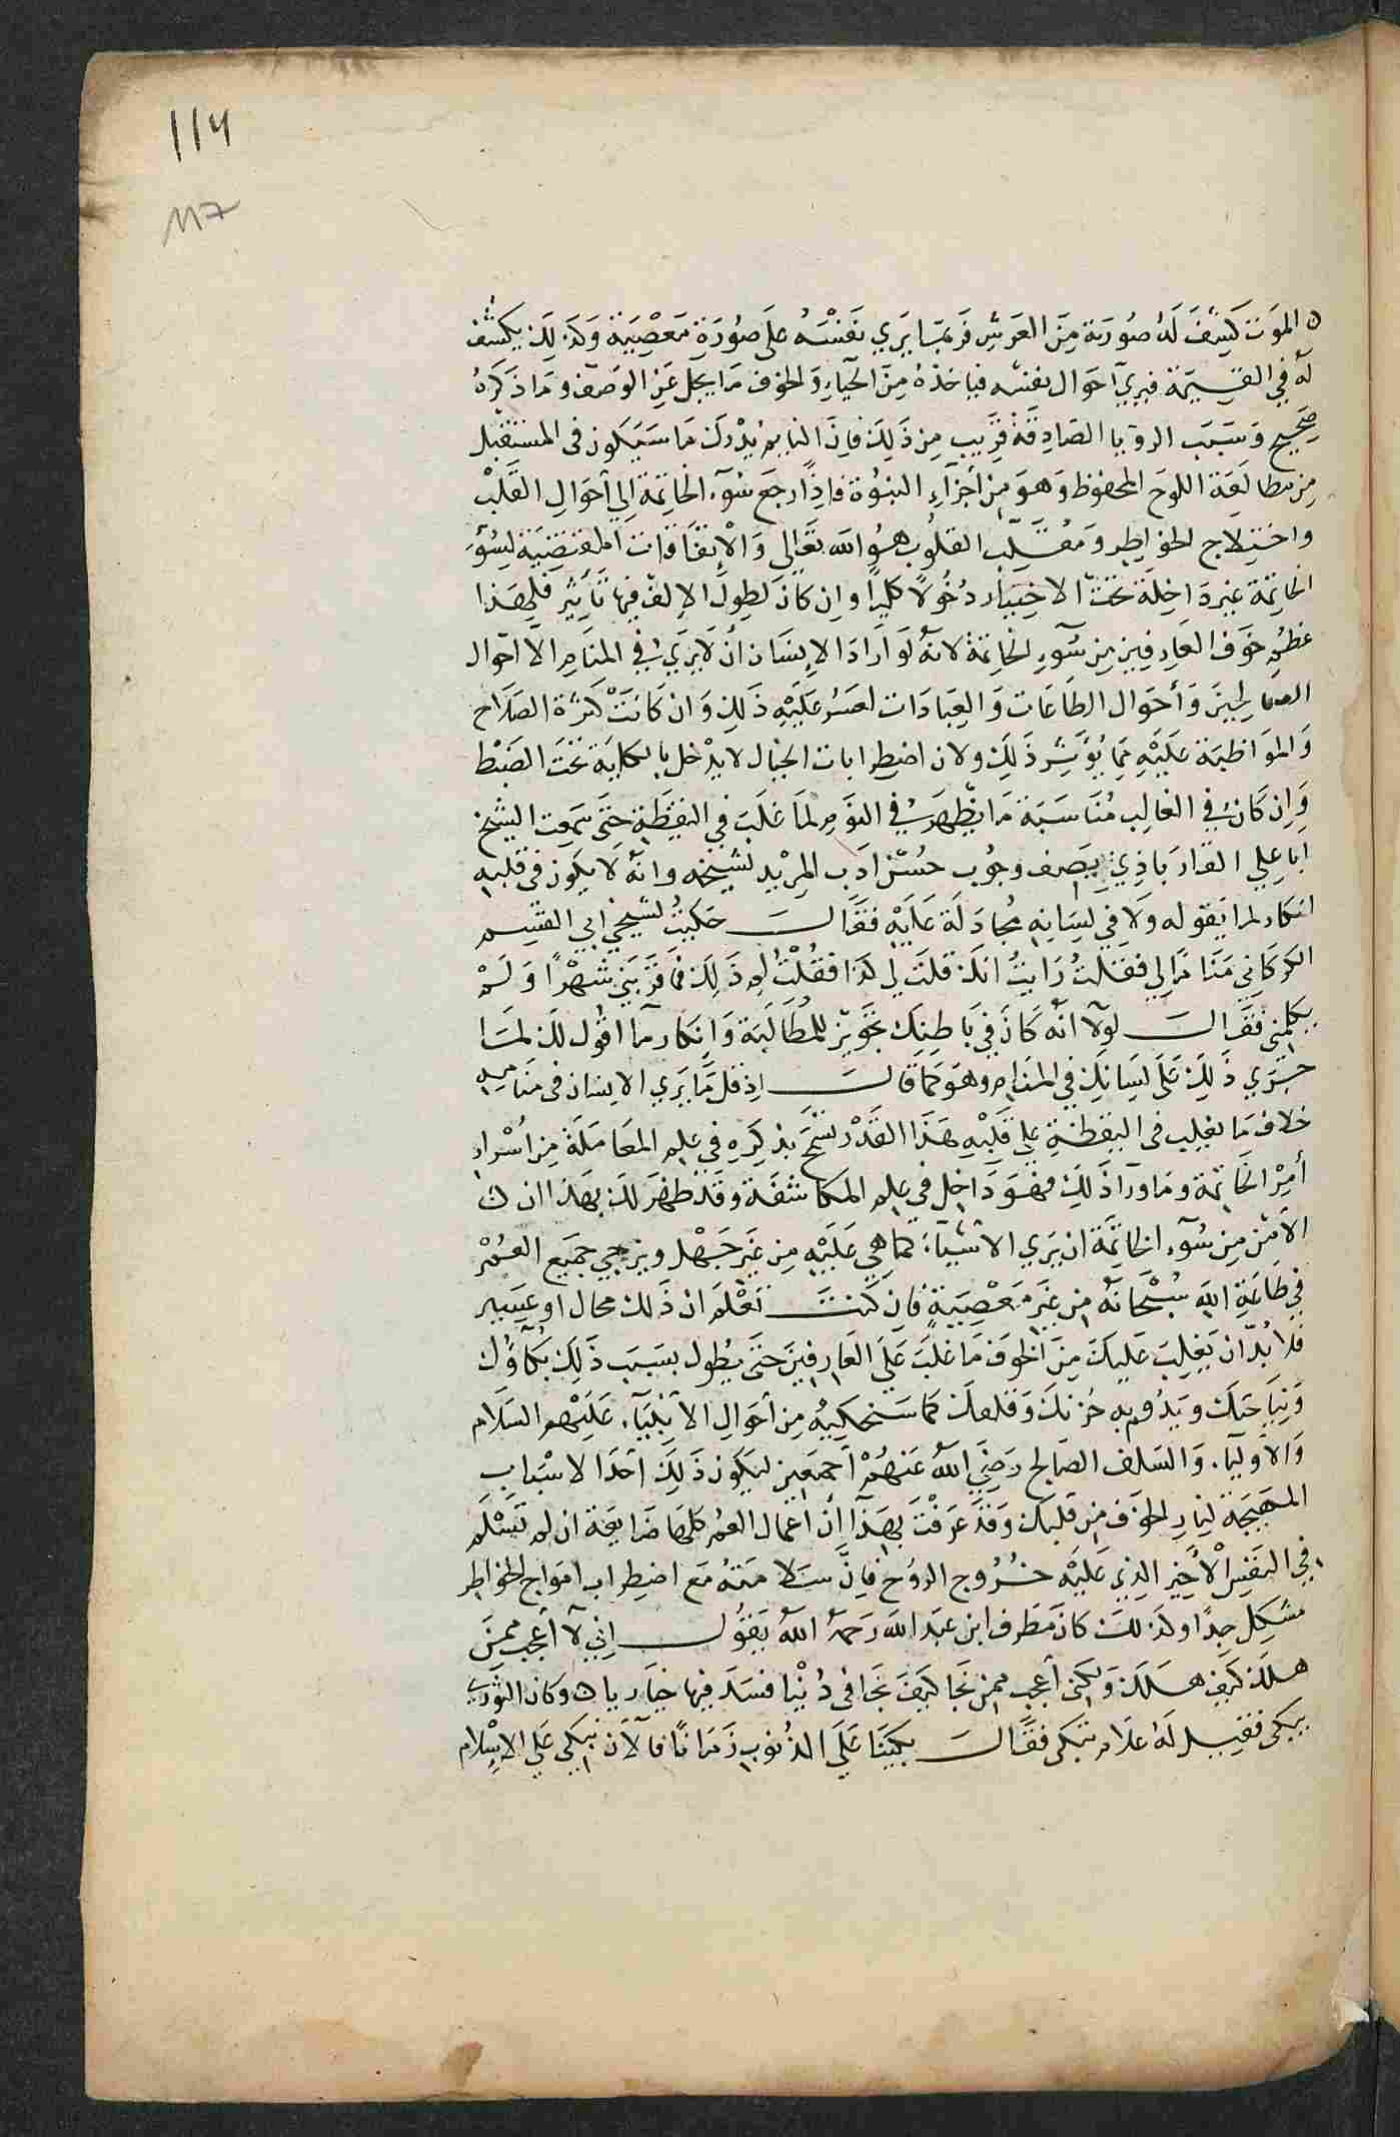 114
117
الموت كشف له صورته من العرش فربما يري نفسه على صورة معصية وكذلك يكشف
له في القيمة فيري احوال نفسه فياخذه من الحياء والخوف ما يجل عن الوصف وما ذكره
صحيح وسبب الرويا الصادقة قريب من ذلك فان النايم يدرك ما سيكون في المستقبل
من مطالعة اللوح المحفوظ وهو من أجزاء النبوة فاذا رجع سوء الخاتمة الي احوال القلب
واختلاج الخواطر ومقلب القلوب هو الله تعالى والإتفاقات المقتضية لسوء
الخاتمة غير داخلة تحت الاختيار دخولا كليا وان كان لطول الإلف فيها تأثير فلهذا
عظم خوف العارفين من سوء الخاتمة لانه لو اراد الإنسان أن لا يري في المنام الا احوال
الصالحين وأحوال الطاعات والعبادات لعسر عليه ذلك وان كانت كثرة الصلاح
والمواظبة عليه مما يؤثر ذلك ولان اضطرابات الخيال لا يدخل بالكلية تحت الضبط
وإن كان في الغالب مناسبة ما يظهر في النوم لما غلب في اليقظة حتى سمعت الشيخ
ابا علي الفارباذي يصف وجوب حسن ادب المريد لشيخه وانه لا يكون في قلبه
انكار لما يقوله ولا في لسانه مجادلة عليه فقال حكيت لشيخي ابي القسم
الكركاني مناما لي فقلت رايت انك قلت لي كذا فقلت لم ذلك فما قربني شهرا ولم
يكلمني فقال لولا انه كان في باطنك تجويز للمطالبة وانكار ما اقول لك لما
جري ذلك على لسانك في المنام وهو كما قال اذ قل ما يري الانسان في منامه
خلاف ما يغلب في اليقظة على قلبه هذا القدر نسمح بذكره في علم المعاملة من أسرار
أمر الخاتمة وما ورآ ذلك فهو داخل في علم المكاشفة وقد ظهر لك بهذا ان
الامن من سوء الخاتمة ان يري الاشياء كما هي عليه من غير جهل ويزجي جميع العمر
في طاعة الله سبحانه من غير معصية فان كنت تعلم ان ذلك محال او عسير
فلا بد ان يغلب عليك من الخوف ما غلب على العارفين حتى يطول بسبب ذلك بكاؤك
ونياحتك ويدوم به حزنك وقلقك كما سنحكيه من احوال الأنبياء عليهم السلام
والأوليآ والسلف الصالح رضي الله عنهم أجمعين ليكون ذلك احدا لاسباب
المهيجة لنار الخوف من قلبك وقد عرفت بهذا أن اعمال العمر كلها ضايعة ان لم تسلم
في النفس الأخير الذي عليه خروج الروح فان سلامته مع اضطراب امواج الخواطر
مشكل جدا ولذلك كان مطرف ابن عبد الله رحمه الله يقول اني لا أعجب ممن
هلك كيف هلك ولكني أعجب ممن نجا كيف نجا في دنيا فسد فيها خيار
يبكى فقيل له علام تبكي فقال بكينا على الذنوب زمانا فالآن نبكي على الإسلام